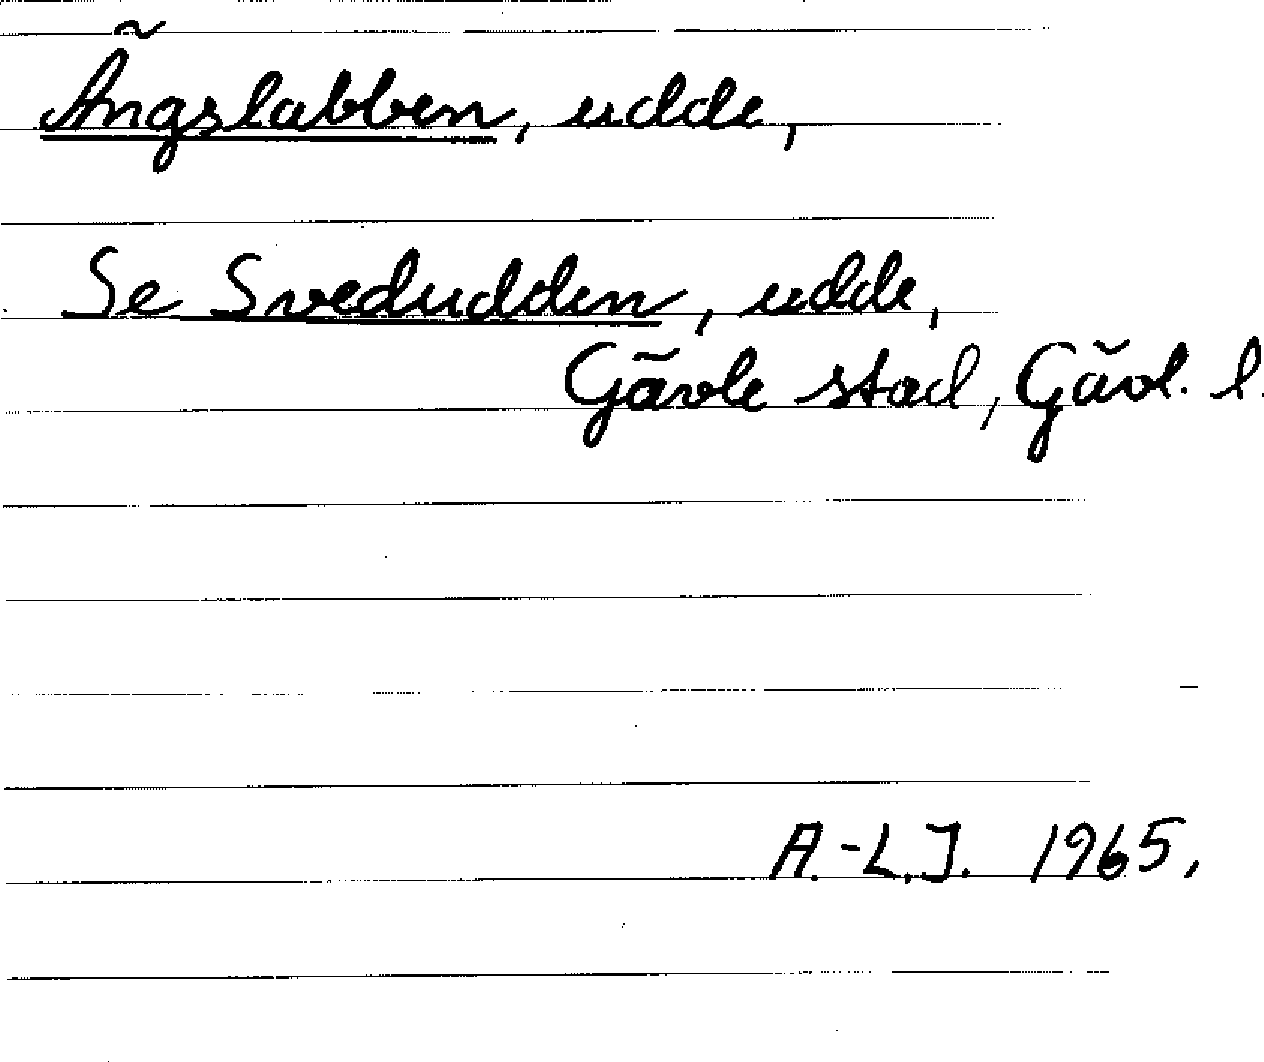 Ängslabben, udde,
Se Svedudden, udde,
Gävle stad, Gävl. l.
A.-L.J. 1965,